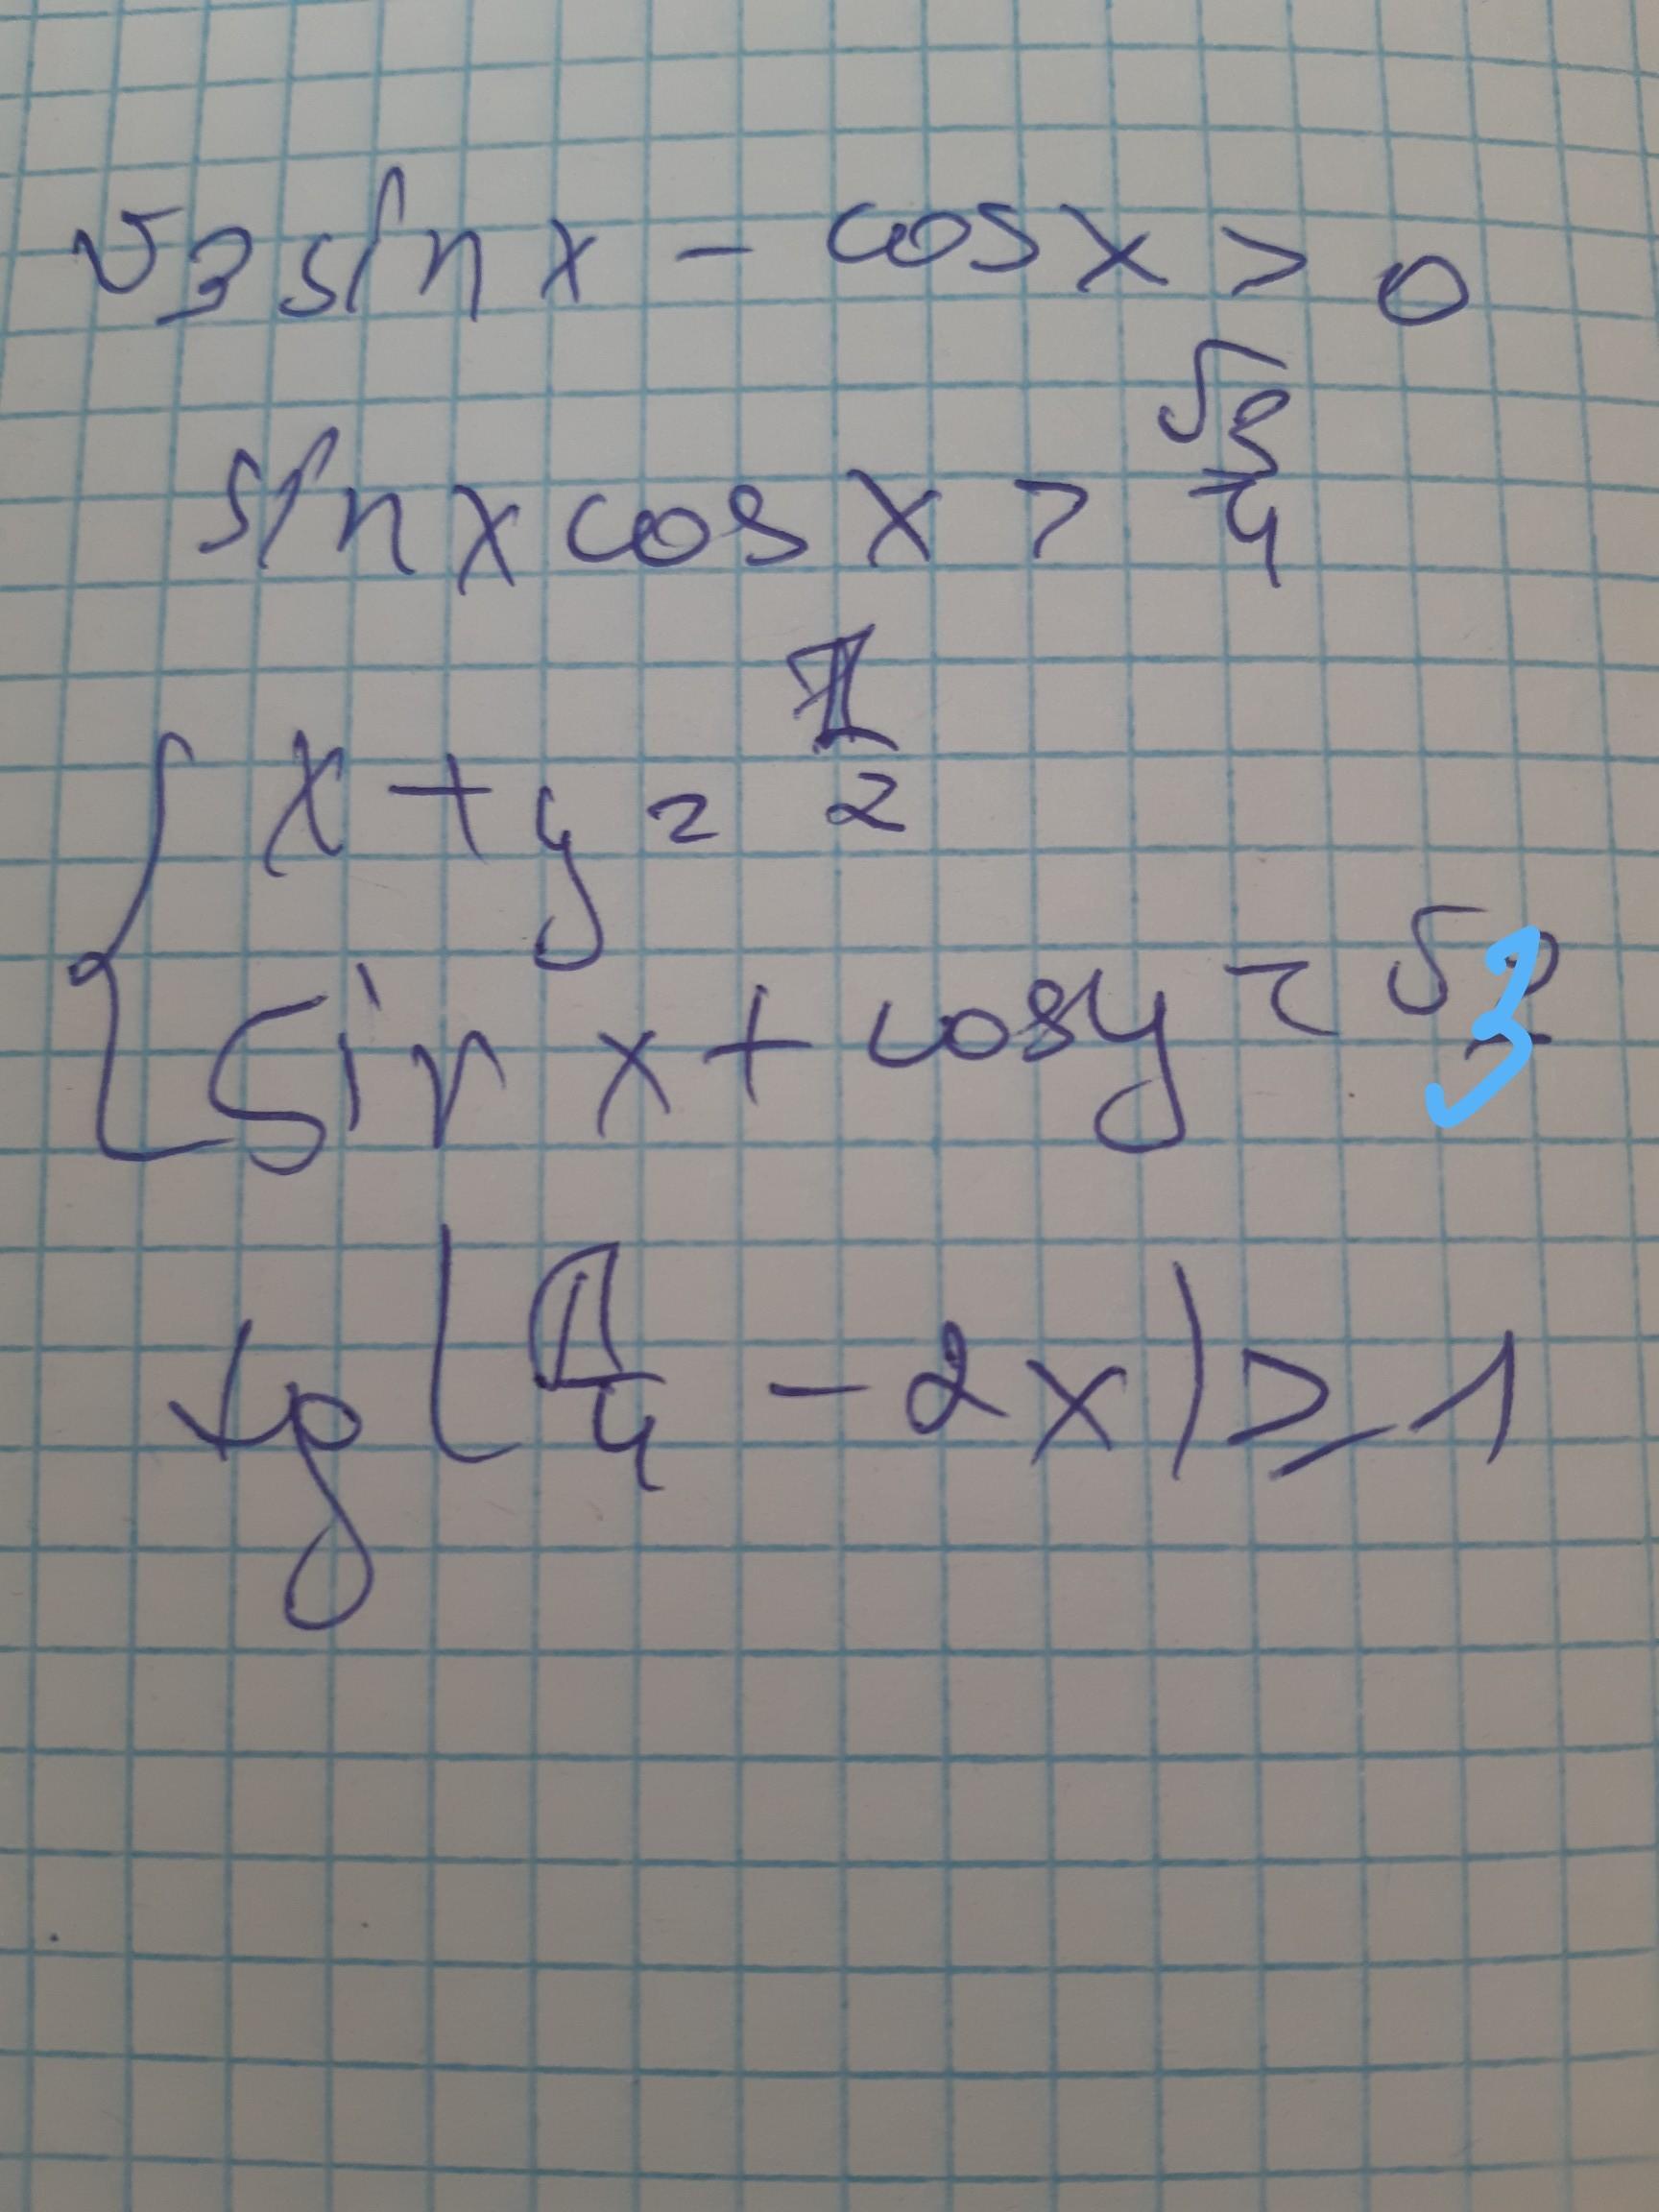 √3 sin x - cos x > 0
sin x cos x > √3/4
{ x + y = π/2
sin x + cos y = √3
tg(π/4 - 2x) ≥ 1